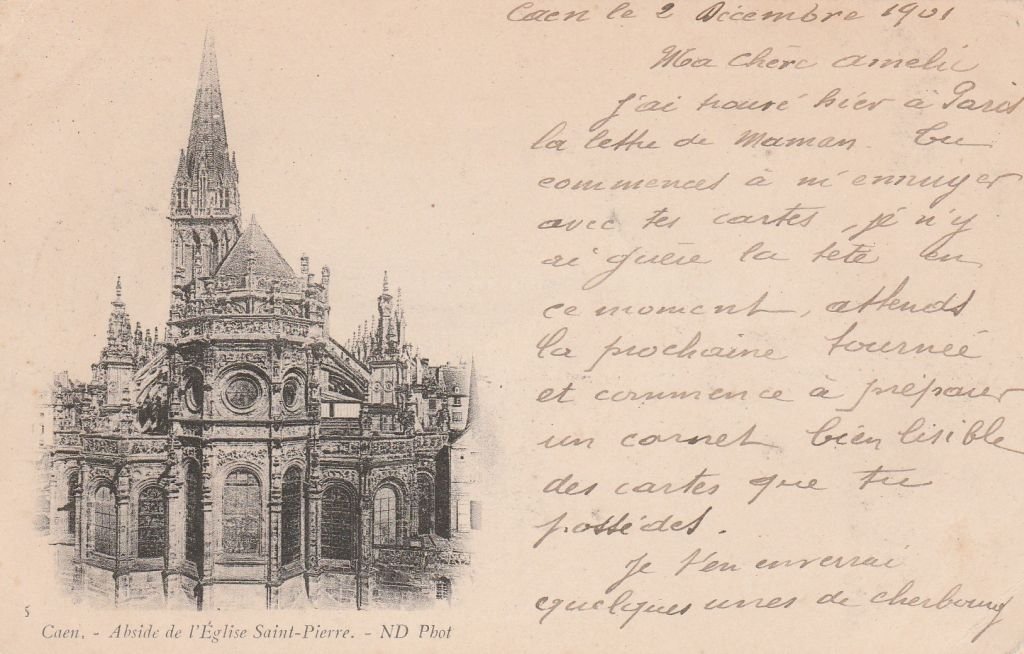 Caen le 2 Décembre 1901
Ma chère amelie
j'ai trouvé hier à Paris
la lettre de Maman. Tu
commences à m'ennuyer
avec tes cartes, je n'y
ai guère la tête en
ce moment, attends
la prochaine tournée
et commence à préparer
un carnet bien lisible
des cartes que tu
possédes.
Je t'en enverrai
quelques unes de cherbourg
5
Caen. - Abside de l'Église Saint-Pierre. - ND Phot